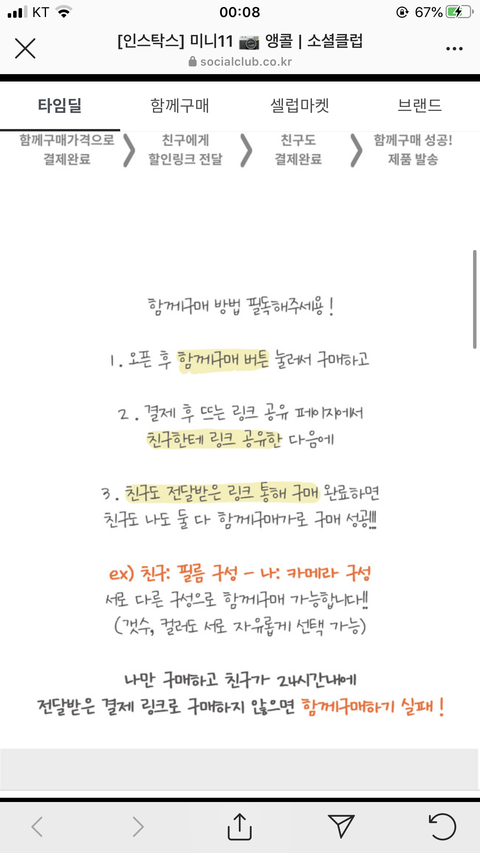 KT 00:08 67%
[인스탁스] 미니11 📷 앵콜 | 소셜클럽
socialclub.co.kr
타임딜 함께구매 셀럽마켓 브랜드
함께구매가격으로 결제완료
친구에게 할인링크 전달
친구도 결제완료
함께구매 성공! 제품 발송
함께구매 방법 필독해주세용!
1. 오픈 후 함께구매 버튼 눌러서 구매하고
2. 결제 후 뜨는 링크 공유 페이지에서
친구한테 링크 공유한 다음에
3. 친구도 전달받은 링크 통해 구매 완료하면
친구도 나도 둘 다 함께구매가로 구매 성공!!!
ex) 친구: 필름 구성 - 나: 카메라 구성
서로 다른 구성으로 함께구매 가능합니다!!
(갯수, 컬러도 서로 자유롭게 선택 가능)
나만 구매하고 친구가 24시간내에
전달받은 결제 링크로 구매하지 않으면 함께구매하기 실패!